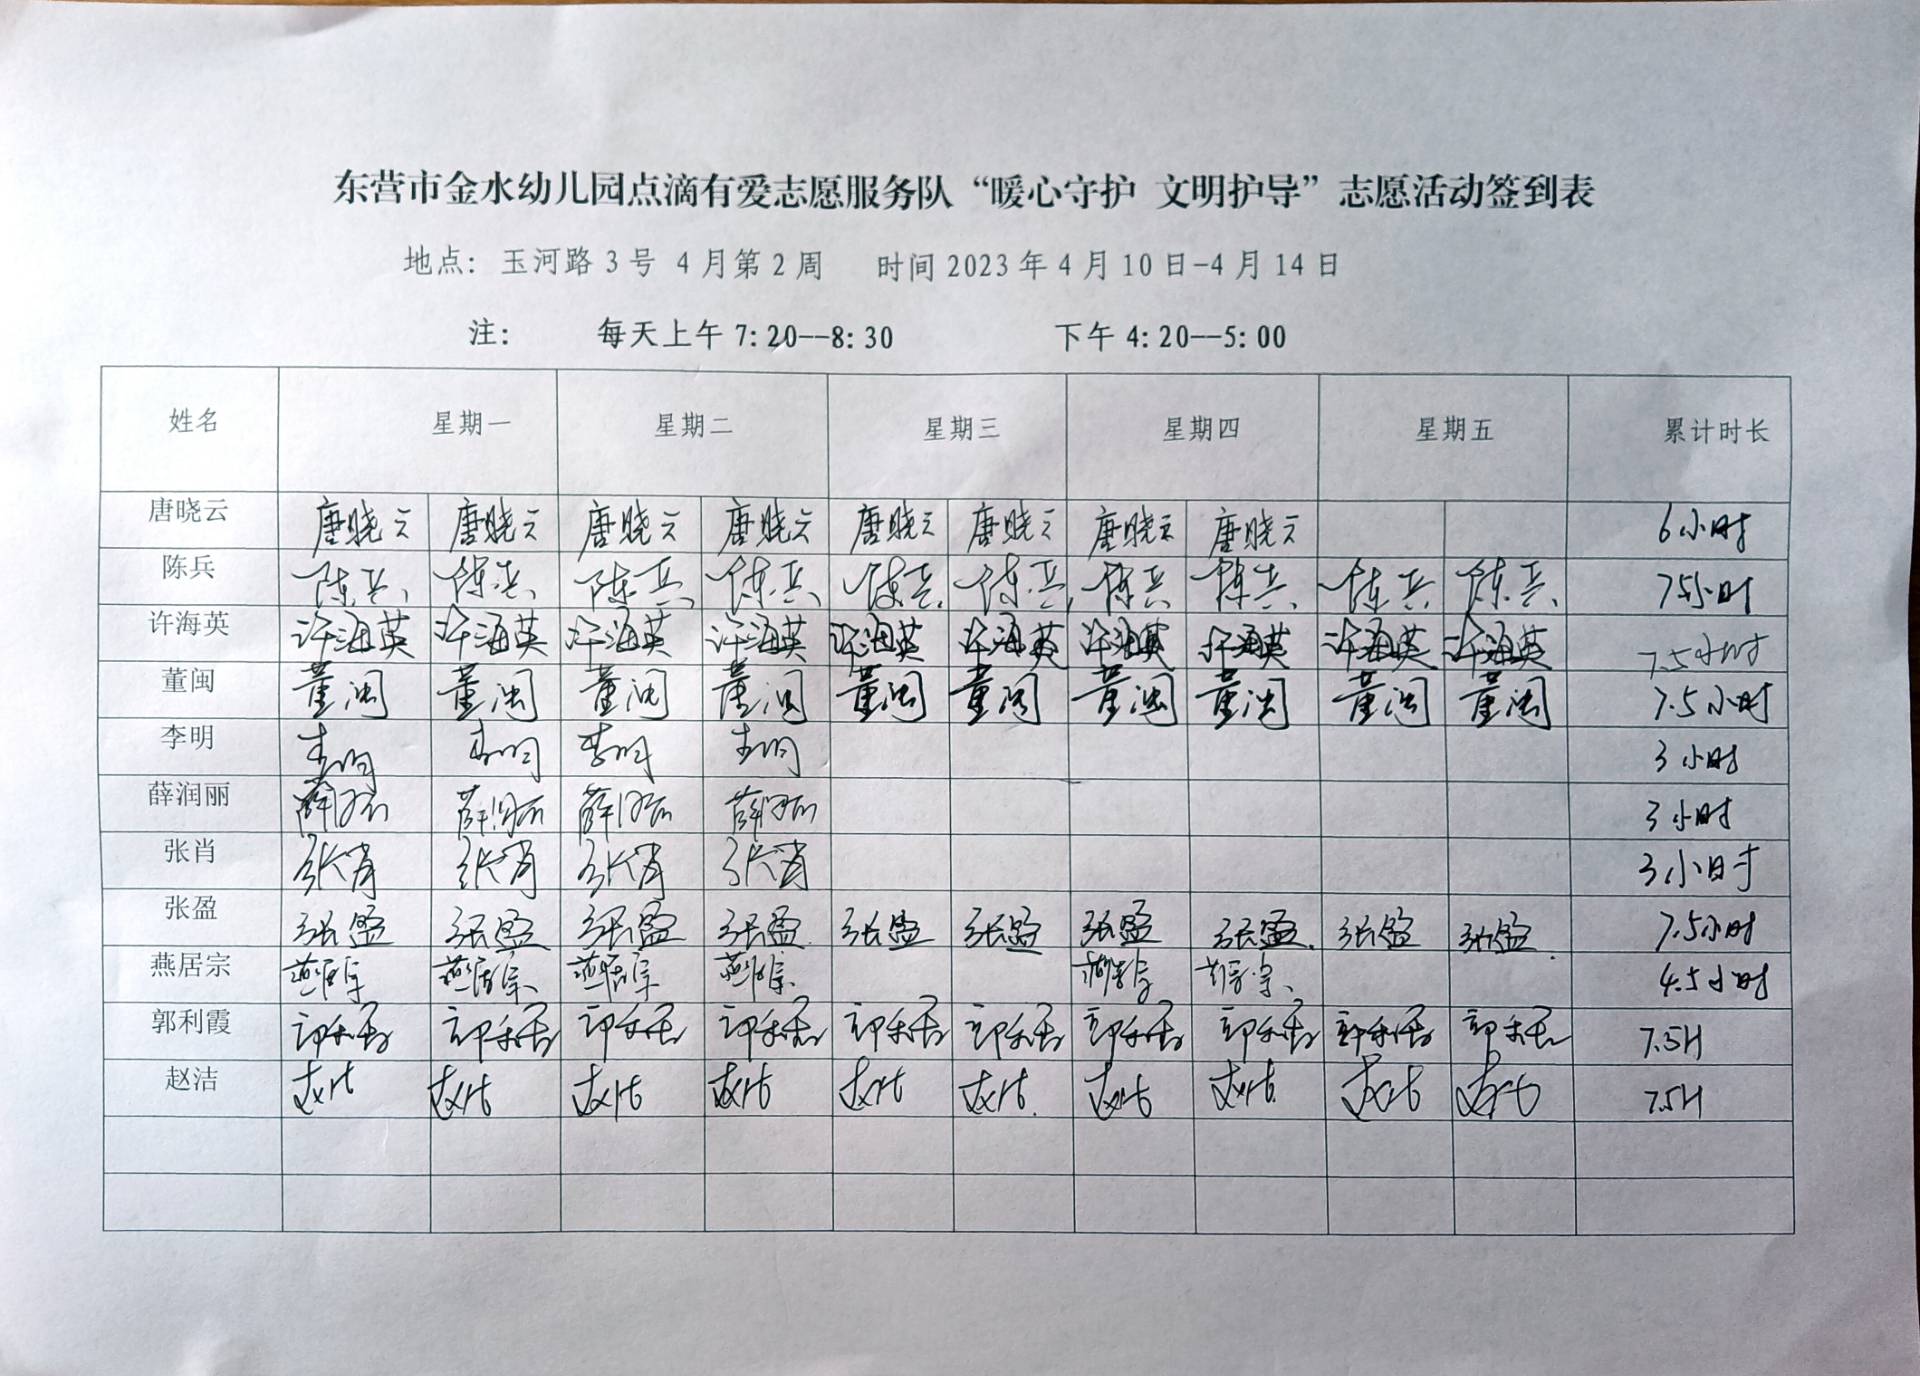 东营市金水幼儿园点滴有爱志愿服务队“暖心守护 文明护导”志愿活动签到表
地点：玉河路 3 号 4 月第 2 周 时间 2023 年 4 月 10 日-4 月 14 日
注： 每天上午 7: 20--8: 30 下午 4: 20--5: 00
姓名 星期一 星期二 星期三 星期四 星期五 累计时长
唐晓云 唐晓云 唐晓云 唐晓云 唐晓云 唐晓云 唐晓云 唐晓云 唐晓云 6小时
陈兵 陈兵 陈兵 陈兵 陈兵 陈兵 陈兵 陈兵 陈兵 陈兵 陈兵 7.5小时
许海英 许海英 许海英 许海英 许海英 许海英 许海英 许海英 许海英 许海英 许海英 7.5小时
董闽 董闽 董闽 董闽 董闽 董闽 董闽 董闽 董闽 董闽 董闽 7.5小时
李明 李明 李明 李明 李明 3小时
薛润丽 薛润丽 薛润丽 薛润丽 薛润丽 3小时
张肖 张肖 张肖 张肖 张肖 3小时
张盈 张盈 张盈 张盈 张盈 张盈 张盈 张盈 张盈 张盈 张盈 7.5小时
燕居宗 燕居宗 燕居宗 燕居宗 燕居宗 燕居宗 燕居宗 4.5小时
郭利霞 郭利霞 郭利霞 郭利霞 郭利霞 郭利霞 郭利霞 郭利霞 郭利霞 郭利霞 郭利霞 7.5H
赵洁 赵洁 赵洁 赵洁 赵洁 赵洁 赵洁 赵洁 赵洁 赵洁 赵洁 7.5H